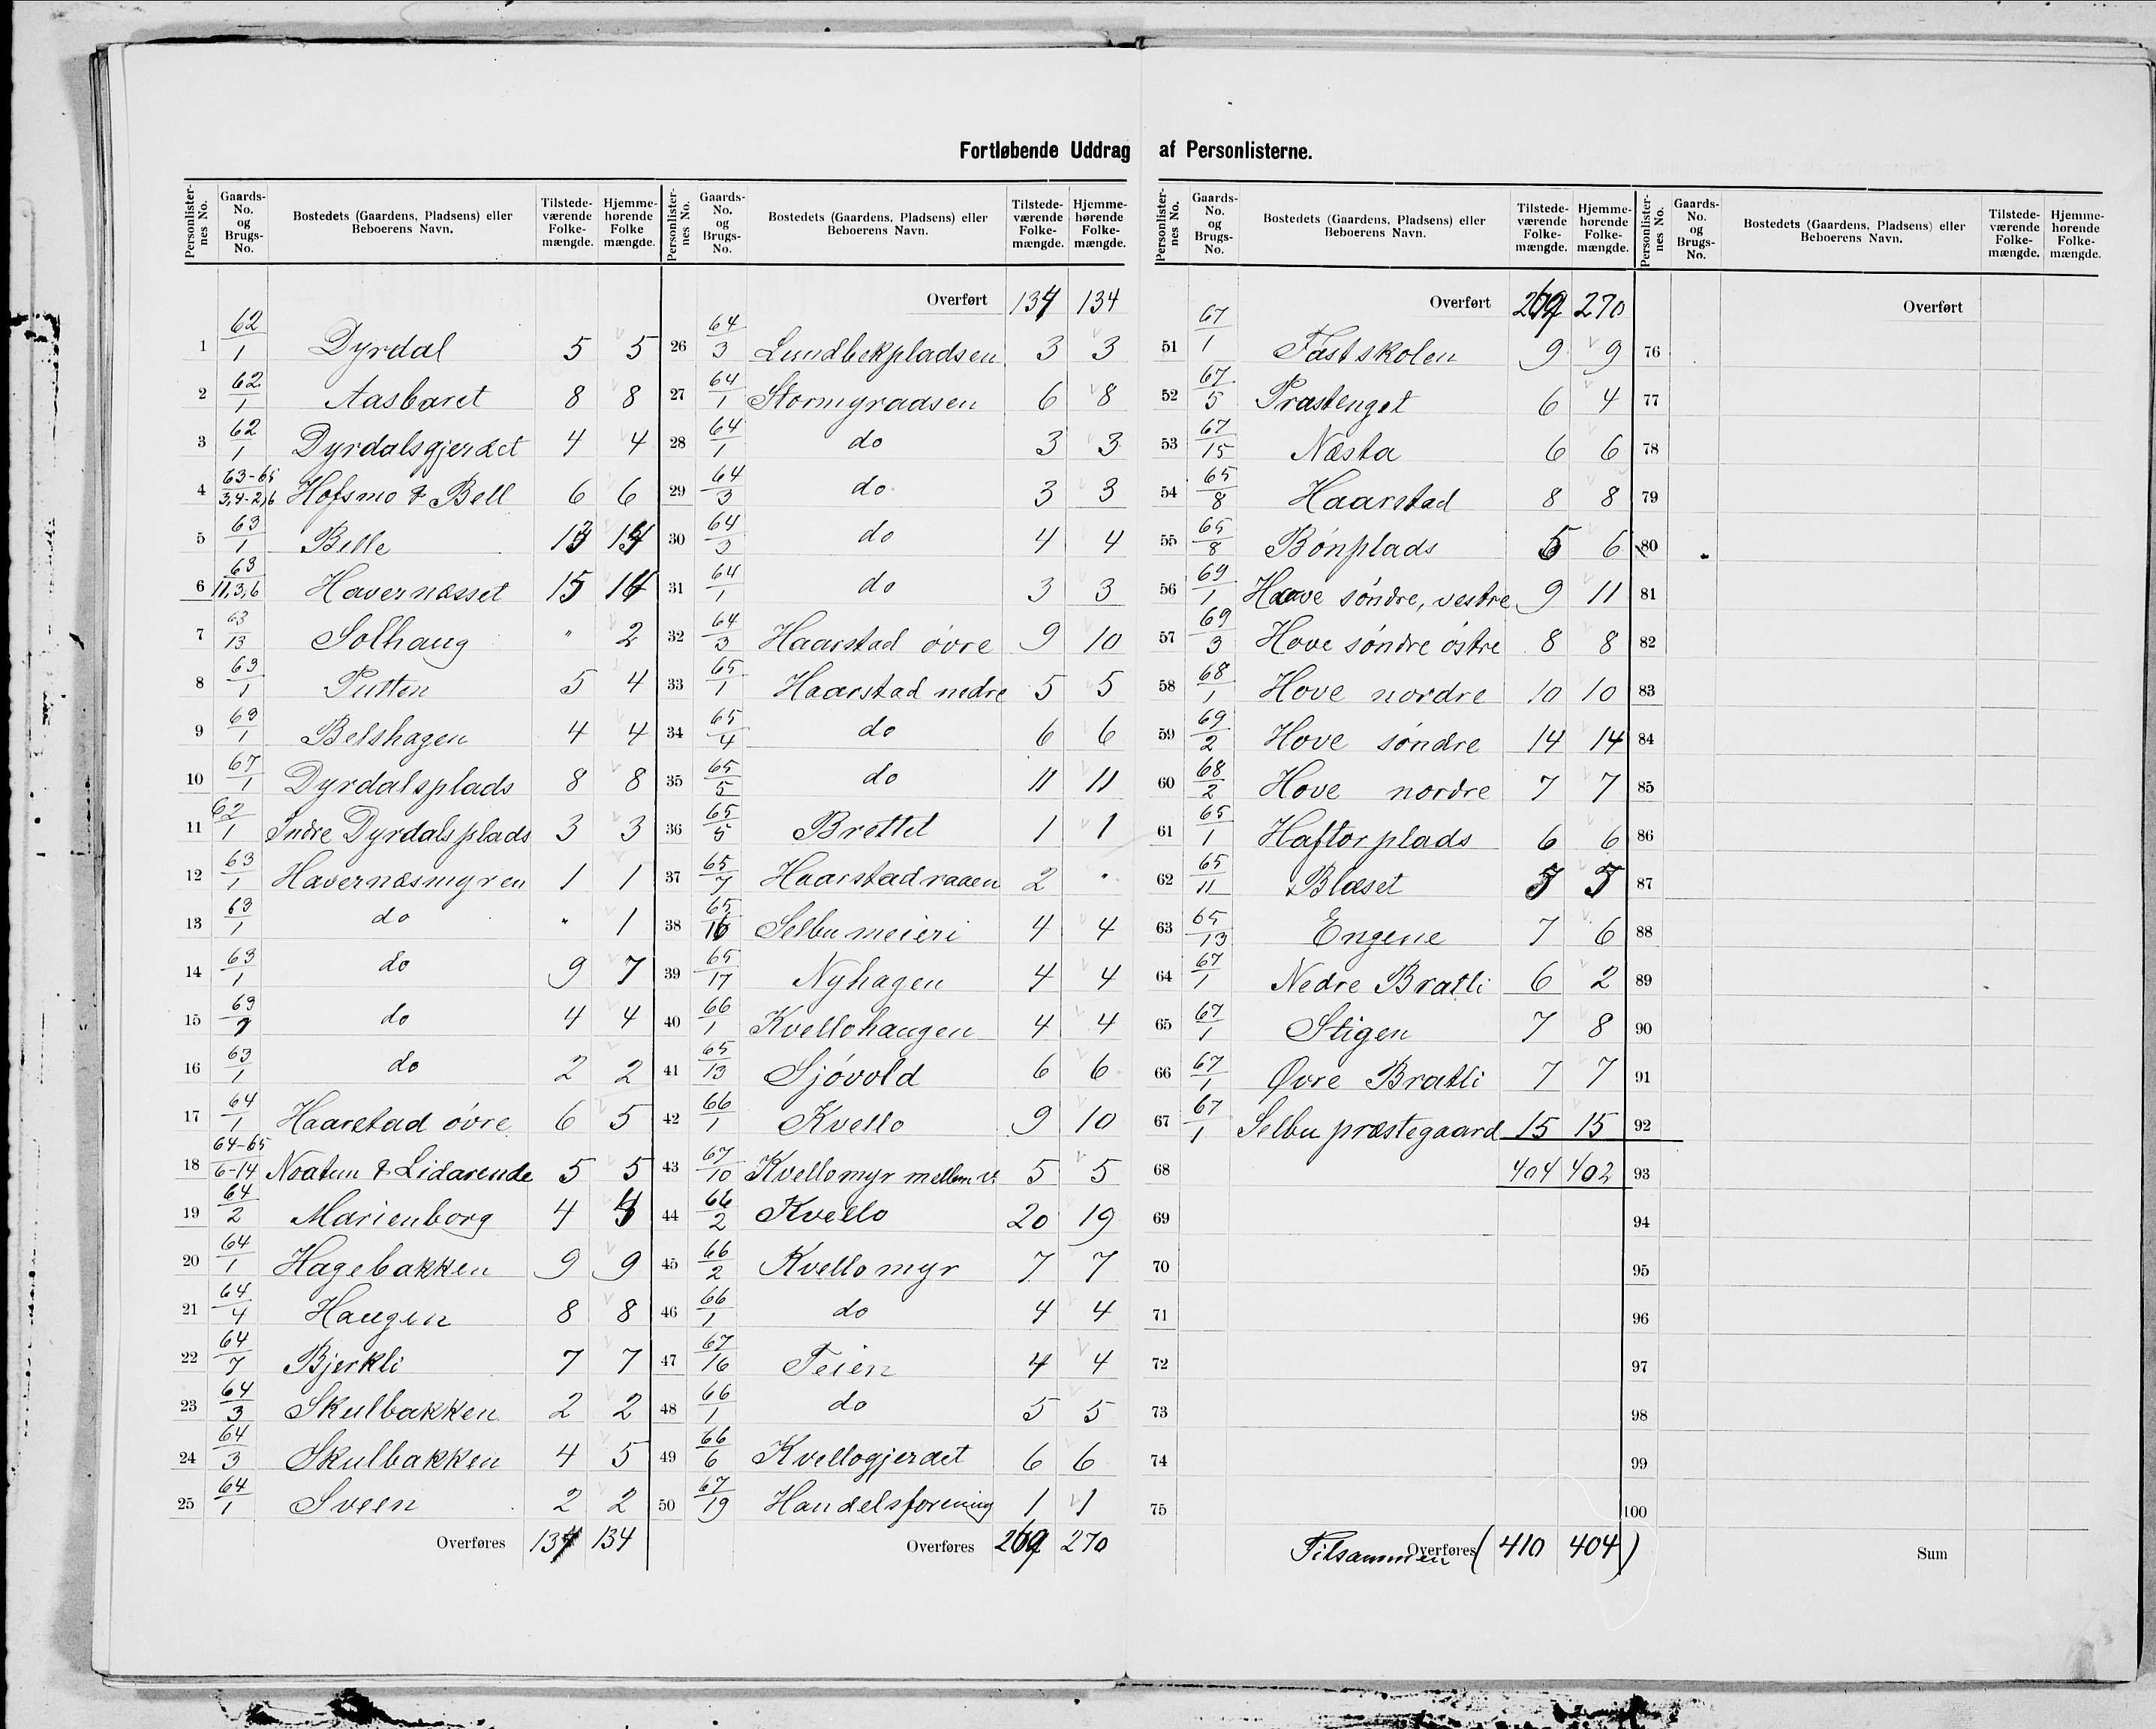 Fortløbende Uddrag af Personlisterne.
Personlisternes No. | Gaards-No. og Brugs-No. | Bostedets (Gaardens, Pladsens) eller Beboerens Navn. | Tilstedeværende Folkemængde. | Hjemmehørende Folkemængde.
1 | 62/1 | Dyrdal | 5 | 5
2 | 62/1 | Aasbaret | 8 | 8
3 | 62/1 | Dyrdalsgjerdet | 4 | 4
4 | 63-65/3,4-2,6 | Hofsmo & Bell | 6 | 6
5 | 63/1 | Belle | 13 | 14
6 | 63/11,3,6 | Havernæsset | 15 | 14
7 | 63/13 | Solhaug | " | 2
8 | 63/1 | Putten | 5 | 4
9 | 63/1 | Belshagen | 4 | 4
10 | 67/1 | Dyrdalsplads | 8 | 8
11 | 62/1 | Indre Dyrdalsplads | 3 | 3
12 | 63/1 | Havernæsmyren | 1 | 1
13 | 63/1 | do | " | 1
14 | 63/1 | do | 9 | 7
15 | 63 | do | 4 | 4
16 | 63/1 | do | 2 | 2
17 | 64/1 | Haarstad øvre | 6 | 5
18 | 64-65/6-14 | Noatun & Lidarende | 5 | 5
19 | 64/2 | Marienborg | 4
20 | 64/1 | Hagebakken | 9 | 9
21 | 64/4 | Haugen | 8 | 8
22 | 64/7 | Bjerkli | 7 | 7
23 | 64/3 | Skulbakken | 2 | 2
24 | 64/3 | Skulbakken | 4 | 5
25 | 64/1 | Sveen | 2 | 2
Overføres | 134 | 134
Personlisternes No. | Gaards-No. og Brugs-No. | Bostedets (Gaardens, Pladsens) eller Beboerens Navn. | Tilstedeværende Folkemængde. | Hjemmehørende Folkemængde.
Overført | 134 | 134
26 | 64/3 | Lundbekpladsen | 3 | 3
27 | 64/1 | Stormgradsen | 6 | 8
28 | 64/1 | do | 3 | 3
29 | 64/3 | do | 3 | 3
30 | 64/3 | do | 4 | 4
31 | 64/1 | do | 3 | 3
32 | 64/3 | Haarstad øvre | 9 | 10
33 | 65/1 | Haarstad nedre | 5 | 5
34 | 65/4 | do | 6 | 6
35 | 65/5 | do | 11 | 11
36 | 65/5 | Brettet | 1 | 1
37 | 65/7 | Haarstadraaen | 2 | "
38 | 65/16 | Selbu meieri | 4 | 4
39 | 65/17 | Nyhagen | 4 | 4
40 | 66/1 | Kvellohaugen | 4 | 4
41 | 65/13 | Sjøvold | 6 | 6
42 | 66/1 | Kvello | 9 | 10
43 | 67/10 | Kvellomyr mellem v. | 5 | 5
44 | 66/2 | Kvello | 20 | 19
45 | 66/2 | Kvellomyr | 7 | 7
46 | 66/1 | do | 4 | 4
47 | 67/16 | Teien | 4 | 4
48 | 66/1 | do | 5 | 5
49 | 66/6 | Kvellogjerdet | 6 | 6
50 | 67/19 | Handelsforening | 1 | 1
Overføres | 269 | 270
Personlisternes No. | Gaards-No. og Brugs-No. | Bostedets (Gaardens, Pladsens) eller Beboerens Navn. | Tilstedeværende Folkemængde. | Hjemmehørende Folkemængde.
Overført | 269 | 270
51 | 67/1 | Fastskolen | 9 | 9
52 | 67/5 | Præstenget | 6 | 4
53 | 67/15 | Næsta | 6 | 6
54 | 65/8 | Haarstad | 8 | 8
55 | 65/8 | Bønplads | 5 | 6
56 | 69/1 | Hove søndre, vestre | 9 | 11
57 | 69/3 | Hove søndre østre | 8 | 8
58 | 68/1 | Hove nordre | 10 | 10
59 | 69/2 | Hove søndre | 14 | 14
60 | 68/2 | Hove nordre | 7 | 7
61 | 65/1 | Haftorplads | 6 | 6
62 | 65/11 | Blæset | 5 | 5
63 | 65/13 | Engene | 7 | 6
64 | 67/1 | Nedre Bratli | 6 | 2
65 | 67/1 | Stigen | 7 | 8
66 | 67/1 | Øvre Bratli | 7 | 7
67 | 67/1 | Selbu præstegaard | 15 | 15
68 | 404 | 402
69
70
71
72
73
74
75
Tilsammen Overføres ( 410 | 404 )
Personlisternes No. | Gaards-No. og Brugs-No. | Bostedets (Gaardens, Pladsens) eller Beboerens Navn. | Tilstedeværende Folkemængde. | Hjemmehørende Folkemængde.
Overført
76
77
78
79
80
81
82
83
84
85
86
87
88
89
90
91
92
93
94
95
96
97
98
99
100
Sum